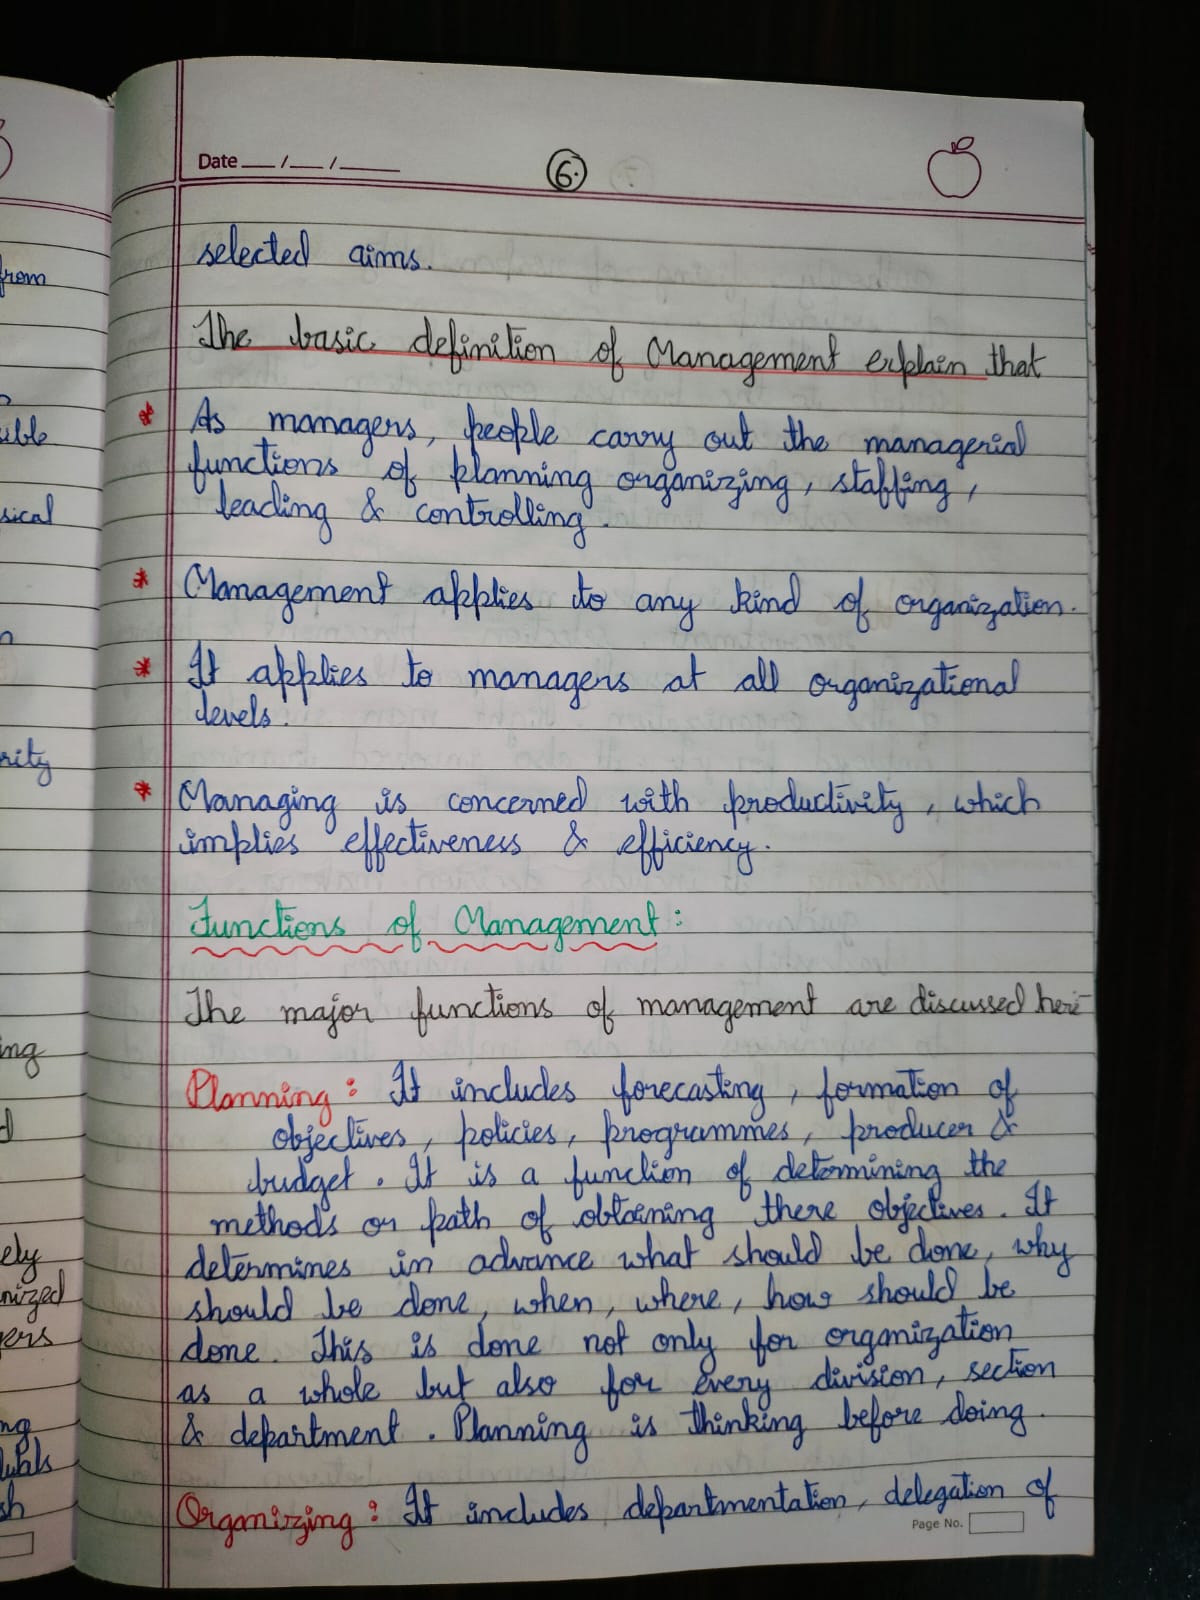 Date __/__/____
6.
selected aims.
The basic definition of Management explain that
* As managers, people carry out the managerial
functions of planning organizing, staffing,
leading & controlling.
* Management applies to any kind of organization.
* It applies to managers at all organizational
levels.
* Managing is concerned with productivity, which
implies effectiveness & efficiency.
Functions of Management:
The major functions of management are discussed here-
Planning: It includes forecasting, formation of
objectives, policies, programmes, producer &
budget. It is a function of determining the
methods or path of obtaining there objectives. It
determines in advance what should be done, why
should be done, when, where, how should be
done. This is done not only for organization
as a whole but also for every division, section
& department. Planning is thinking before doing.
Organizing: It includes departmentation, delegation of
Page No.
from
sical
ing
ely